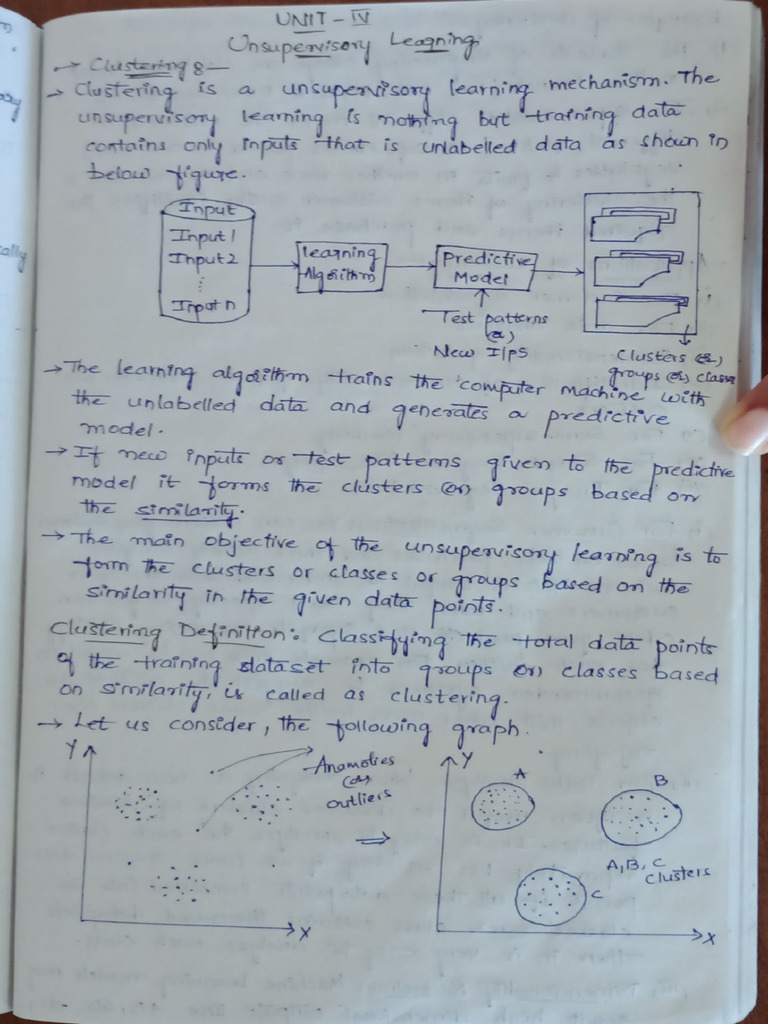 UNIT - IV
Unsupervisory Learning
→ Clustering :-
→ Clustering is a unsupervisory learning mechanism. The
unsupervisory learning is nothing but training data
contains only inputs that is unlabelled data as shown in
below figure.
Input
Input 1
Input 2
Input n
learning
Algorithm
Predictive
Model
Test patterns
(or)
New I/ps
Clusters (or)
groups (or) classe
→ The learning algorithm trains the computer machine with
the unlabelled data and generates a predictive
model.
→ If new inputs or test patterns given to the predictive
model it forms the clusters (or) groups based on
the similarity.
→ The main objective of the unsupervisory learning is to
form the clusters or classes or groups based on the
similarity in the given data points.
Clustering Definition: Classifying the total data points
of the training dataset into groups (or) classes based
on similarity, is called as clustering.
→ Let us consider, the following graph.
Y
Anamolies
(or)
outliers
X
⇒
Y
A
B
C
A, B, C
clusters
X
ally